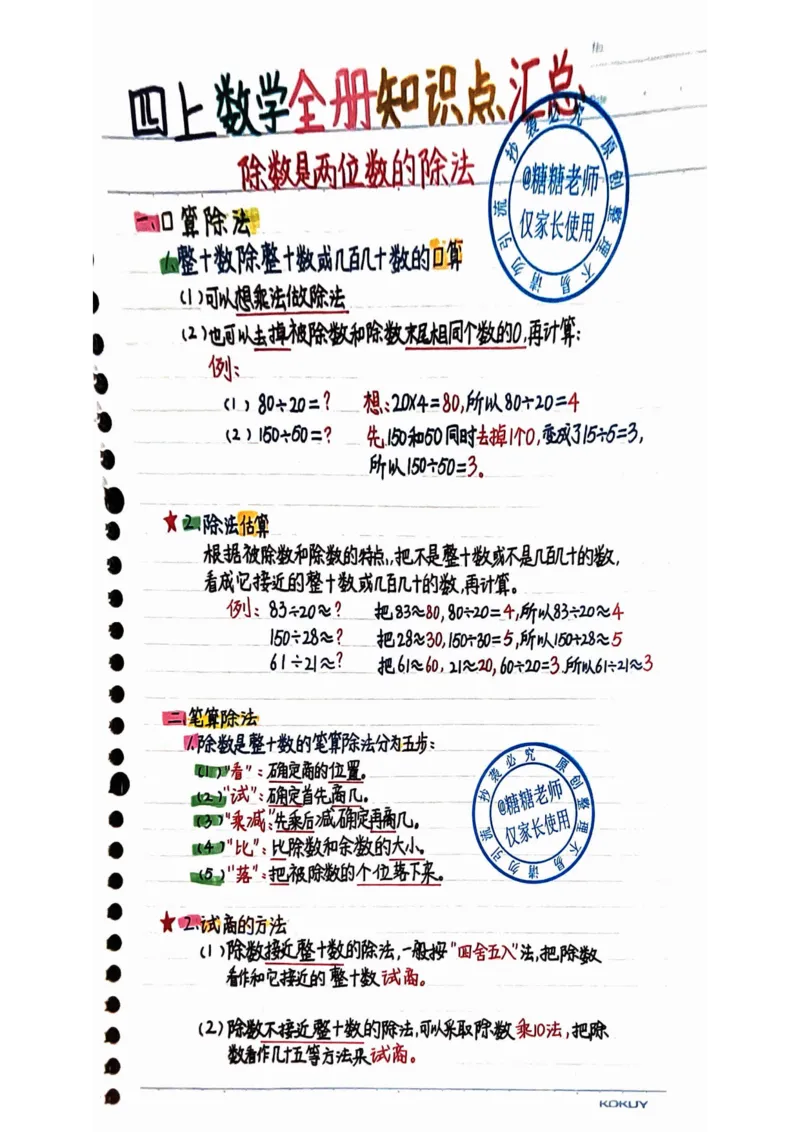 四上数学全册知识点汇总
除数是两位数的除法
一、口算除法
1.整十数除整十数或几百几十数的口算
(1)可以想乘法做除法
(2)也可以去掉被除数和除数末尾相同个数的0,再计算:
例:
(1) 80÷20=? 想:20×4=80,所以80÷20=4
(2) 150÷50=? 先150和50同时去掉1个0,变成了15÷5=3,
所以150÷50=3。
★2.除法估算
根据被除数和除数的特点,把不是整十数或不是几百几十的数,
看成它接近的整十数或几百几十的数,再计算。
例: 83÷20≈? 把83≈80,80÷20=4,所以83÷20≈4
150÷28≈? 把28≈30,150÷30=5,所以150÷28≈5
61÷21≈? 把61≈60, 21≈20, 60÷20=3.所以61÷21≈3
二、笔算除法
1.除数是整十数的笔算除法分为五步:
(1)"看":确定商的位置。
(2)"试":确定首先商几。
(3)"乘减":先乘后减确定再商几。
(4)"比":比除数和余数的大小。
(5)"落":把被除数的个位落下来。
★2.试商的方法
(1)除数接近整十数的除法,一般按"四舍五入"法,把除数
看作和它接近的整十数试商。
(2)除数不接近整十数的除法,可以采取除数乘10法,把除
数看作几十五等方法来试商。
抄袭必究 原创整理 不易请勿引流
@糖糖老师
仅家长使用
抄袭必究 原创整理 不易请勿引流
@糖糖老师
仅家长使用
KOKUY